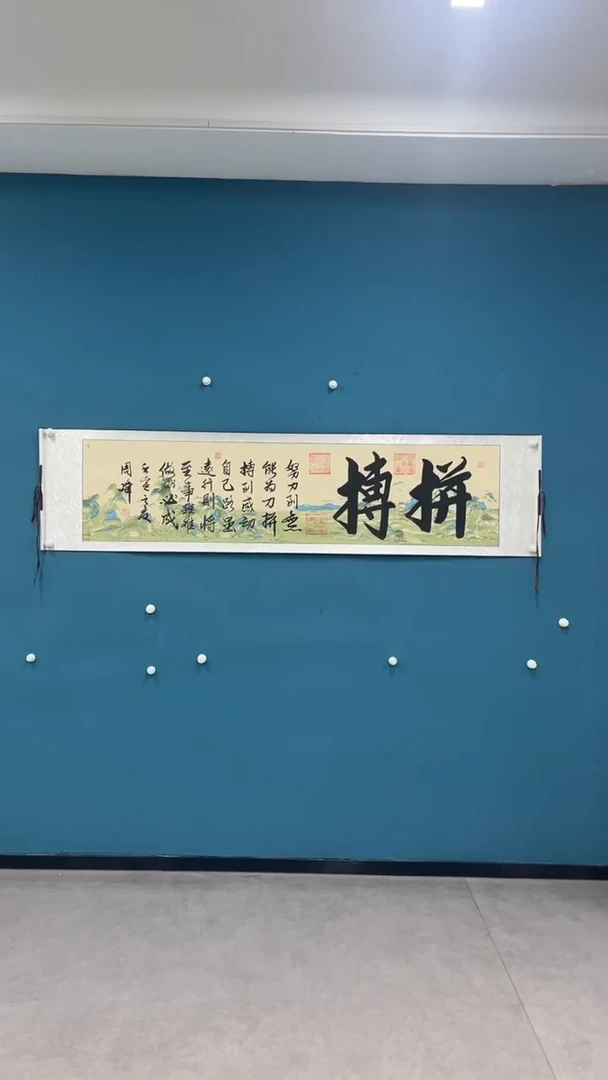 拼搏
努力到無
能为力拼
搏到感动
自己路虽
遠行則将
至事雖难
做則必成
壬寅之夏
周峰